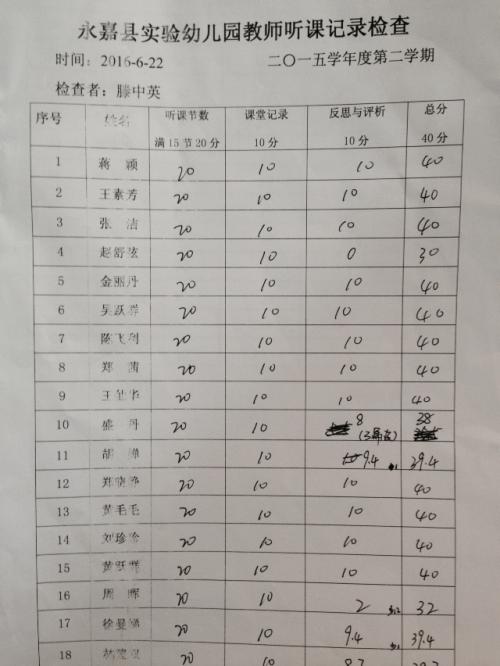 永嘉县实验幼儿园教师听课记录检查
时间：2016-6-22 二〇一五学年度第二学期
检查者：滕中英
序号 姓名 听课节数 课堂记录 反思与评析 总分
满15节20分 10分 10分 40分
1 蒋 颖 20 10 10 40
2 王素芳 20 10 10 40
3 张 洁 20 10 10 40
4 赵舒弦 20 10 0 30
5 金丽丹 20 10 10 40
6 吴跃群 20 10 10 40
7 陈飞利 20 10 10 40
8 郑 茜 20 10 10 40
9 20 10 10 40
10 盛 丹 20 10 8 38
11 胡 20 10 9.4 39.4
12 郑晓静 20 10 10 40
13 黄毛毛 20 10 10 40
14 刘珍珍 20 10 10 40
15 黄跃辉 20 10 10 40
16 周 晖 20 10 2 32
17 徐曼 20 10 9.4 39.4
18 20 10